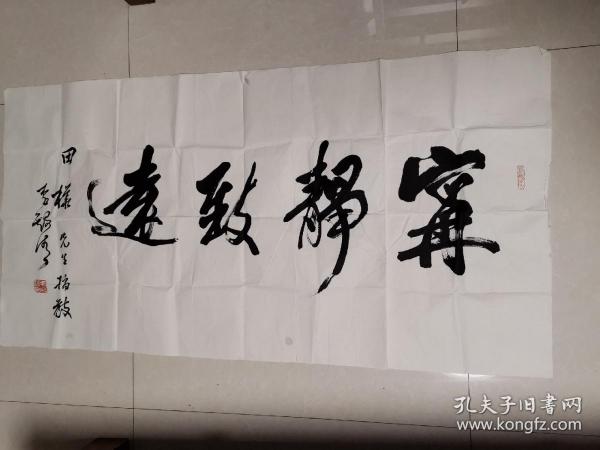 甯静致遠
田样先生指教
孔夫子旧书网
www.kongfz.com